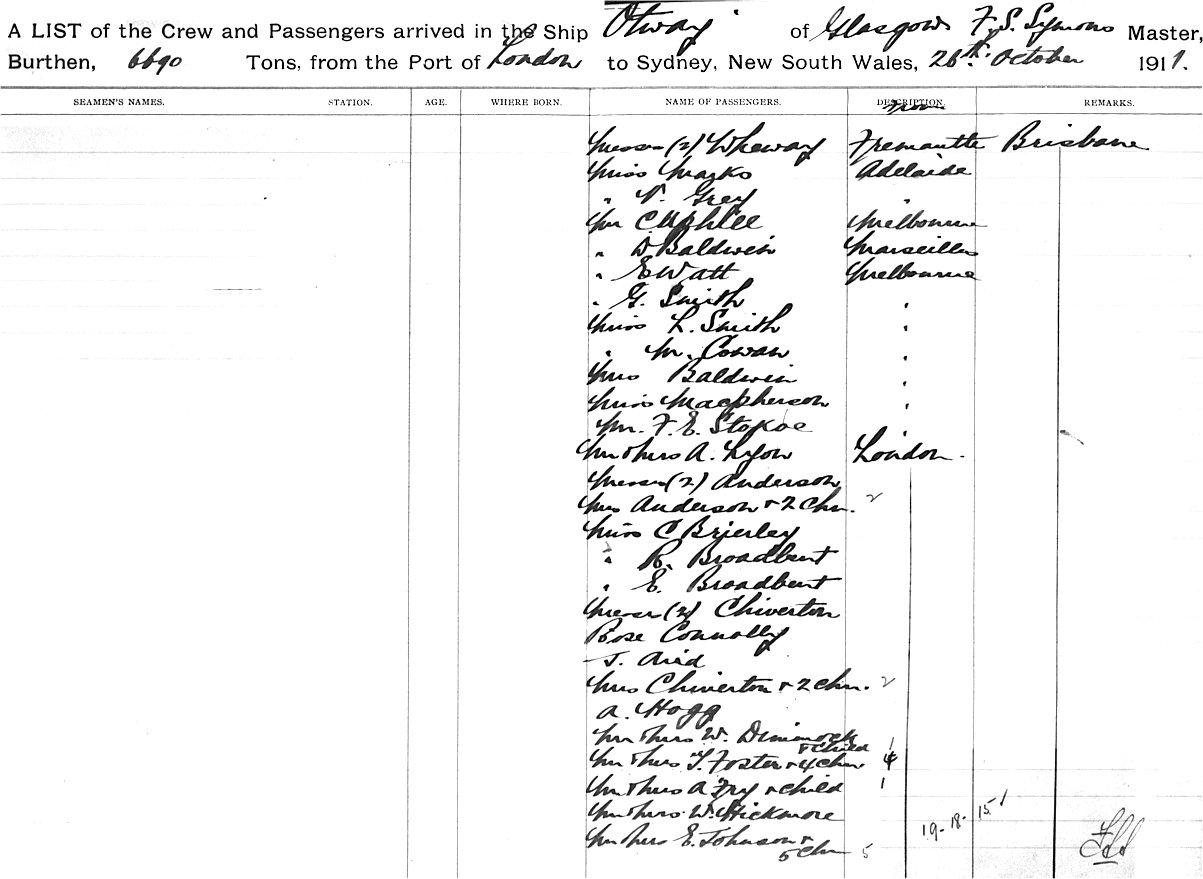 A LIST of the Crew and Passengers arrived in the Ship Otway of Glasgow F. S. Symons Master,
Burthen, 6690 Tons, from the Port of London to Sydney, New South Wales, 26th October 1911.
SEAMEN'S NAMES. STATION. AGE. WHERE BORN. NAME OF PASSENGERS. DESCRIPTION. REMARKS.
from
Messrs (2) Wheway Fremantle Brisbane
Miss Marks Adelaide
" V. Grey "
Mr C. Uphill Melbourne
" D. Baldwin Marseilles
" E Watt Melbourne
" G. Smith "
Miss L. Smith "
" M. Cowan "
Mrs Baldwin "
Miss Macpherson "
Mr. F. E. Stokoe
Mr & Mrs A. Lyon London.
Messrs (2) Anderson
Mrs Anderson & 2 Chn. 2
Miss C Brierley
" R. Broadbent
" E. Broadbent
Messrs (2) Chiverton
Rose Connolly
J. Arid
Mrs Chiverton & 2 Chn. 2
A. Hogg
Mr & Mrs W. Dimmock & Child 1
Mr & Mrs T. Foster & 4 Chn 4
Mr & Mrs A Fry & child 1
Mr & Mrs W. Hickmore
Mr & Mrs E. Johnson & 5 Chn 5
19-18- 15